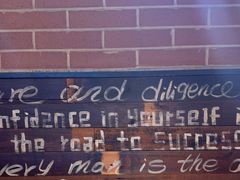 are and diligence
nfidance in yourself i
the road to success
very man is the a